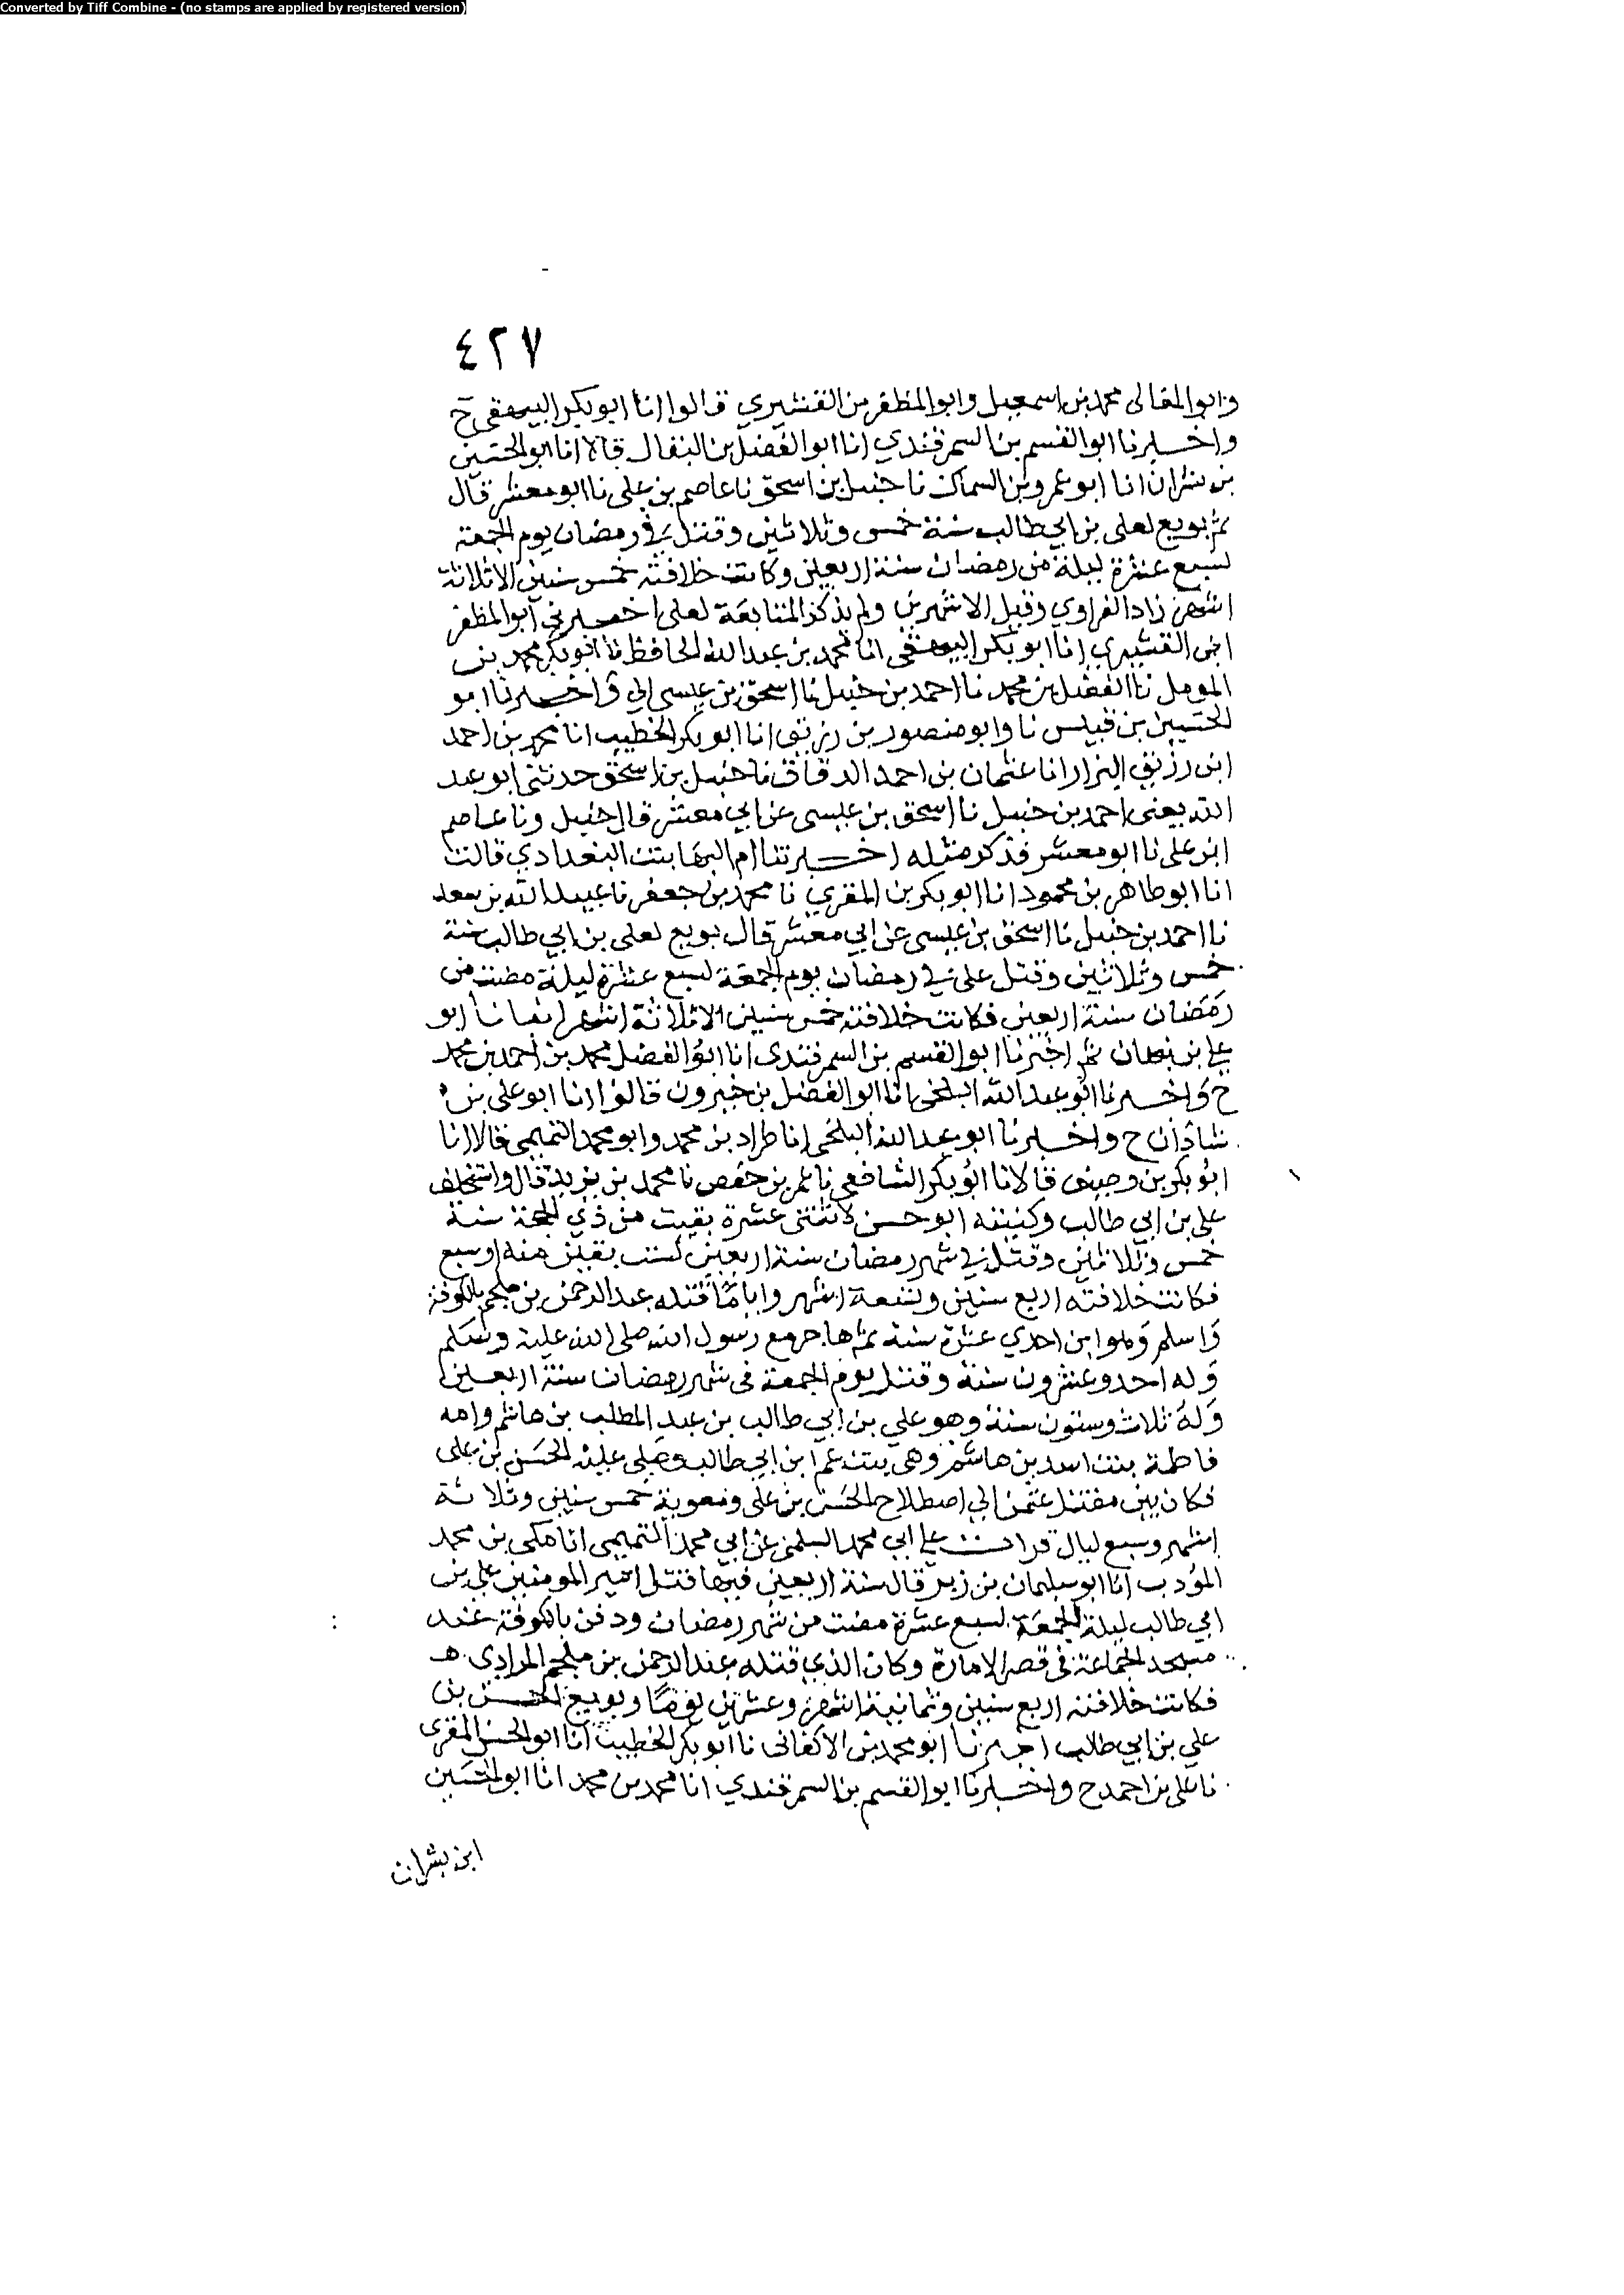 Converted by Tiff Combine - (no stamps are applied by registered version)
٤٢٧
وابو المعالى محمد بن اسمعيل وابو المظفر بن القشيري قالوا انا ابو بكر البيهقى ح
واخبرنا ابو القسم بن السمرقندي انا ابو الفضل بن البقال قالا انا ابو الحسين
بن بشران انا ابو عمرو بن السماك نا حنبل بن اسحق نا عاصم بن على نا ابو معشر قال
ثم بويع لعلى بن ابي طالب سنة خمس وثلاثين وقتل في رمضان يوم الجمعة
لسبع عشرة ليلة من رمضان سنة اربعين وكانت خلافته خمس سنين الا ثلاثة
اشهر زاد الفراوي وقيل الا شهرين ولم يذكر المتابعة لعلى اخبرني ابو المظفر
ابن القشيري انا ابو بكر البيهقى انا محمد بن عبد الله الحافظ نا ابو بكر محمد بن
المومل نا الفضل بن محمد نا احمد بن حنبل نا اسحق بن عيسى الى واخبرنا ابو
الحسين بن قبيس نا وابو منصور بن زريق انا ابو بكر الخطيب انا محمد بن احمد
ابن رزيق البزار انا عثمان بن احمد الدقاق نا حنبل بن اسحق حدثني ابو عبد
الله يعنى احمد بن حنبل نا اسحق بن عيسى عن ابي معشر قال حنبل ونا عاصم
ابن على نا ابو معشر فذكر مثله اخبرتنا ام البها بنت البغدادي قالت
انا ابو طاهر بن محمود انا ابو بكر بن المقري نا محمد بن جعفر نا عبيد الله بن سعد
نا احمد بن حنبل نا اسحق بن عيسى عن ابي معشر قال بويع لعلى بن ابي طالب سنة
خمس وثلاثين وقتل على في رمضان يوم الجمعة لسبع عشرة ليلة مضت من
رمضان سنة اربعين فكانت خلافته خمس سنين الا ثلاثة اشهر انبانا ابو
علي بن نبهان ثم اخبرنا ابو القسم بن السمرقندى انا ابو الفضل محمد بن احمد بن محمد
ح واخبرنا ابو عبد الله البلخى انا ابو الفضل بن خيرون قالوا انا ابو على بن
شاذان ح واخبرنا ابو عبد الله البلخى انا طراد بن محمد وابو محمد التميمي قالا انا
ابو بكر بن وصيف قالا نا ابو بكر الشافعى نا عمر بن حفص نا محمد بن يزيد قال واستخلف
على بن ابي طالب وكنيته ابو حسن لاثنتى عشرة بقيت من ذي الحجة سنة
خمس وثلاثين وقتل في شهر رمضان سنة اربعين لست بقين منه او سبع
فكانت خلافته اربع سنين وتسعة اشهر واياما قتله عبد الرحمن بن ملجم بالكوفة
واسلم وهو ابن احدي عشرة سنة ثم هاجر مع رسول الله صلى الله عليه وسلم
وله احد وعشرون سنة وقتل يوم الجمعة فى شهر رمضان سنة اربعين
وله ثلاث وستون سنة وهو علي بن ابي طالب بن عبد المطلب بن هاشم وامه
فاطمة بنت اسد بن هاشم وهى بنت عم ابن ابي طالب وصلى عليه الحسن بن على
فكان بين مقتل عثمن الي اصطلاح الحسن بن على ومعوية خمس سنين وثلاثة
اشهر وسبع ليال قرات علي ابي محمد السلمى عن ابي محمد التميمي انا مكى بن محمد
المؤدب انا ابو سليمان بن زبر قال سنة اربعين فيها قتل امير المومنين علي بن
ابي طالب ليلة الجمعة لسبع عشرة مضت من شهر رمضان ودفن بالكوفة عند
مسجد الجماعة فى قصر الامارة وكان الذي قتله عبد الرحمن بن ملجم المرادي هـ
فكانت خلافته اربع سنين وثمانية اشهر وعشرين يوما وبويع الحسن بن
علي بن ابي طالب اخبرنا ابو محمد بن الاكفانى نا ابو بكر الخطيب انا ابو الحسن المقرى
نا على بن احمد ح واخبرنا ابو القسم بن السمرقندي انا محمد بن محمد انا ابو الحسين
ابن بشران